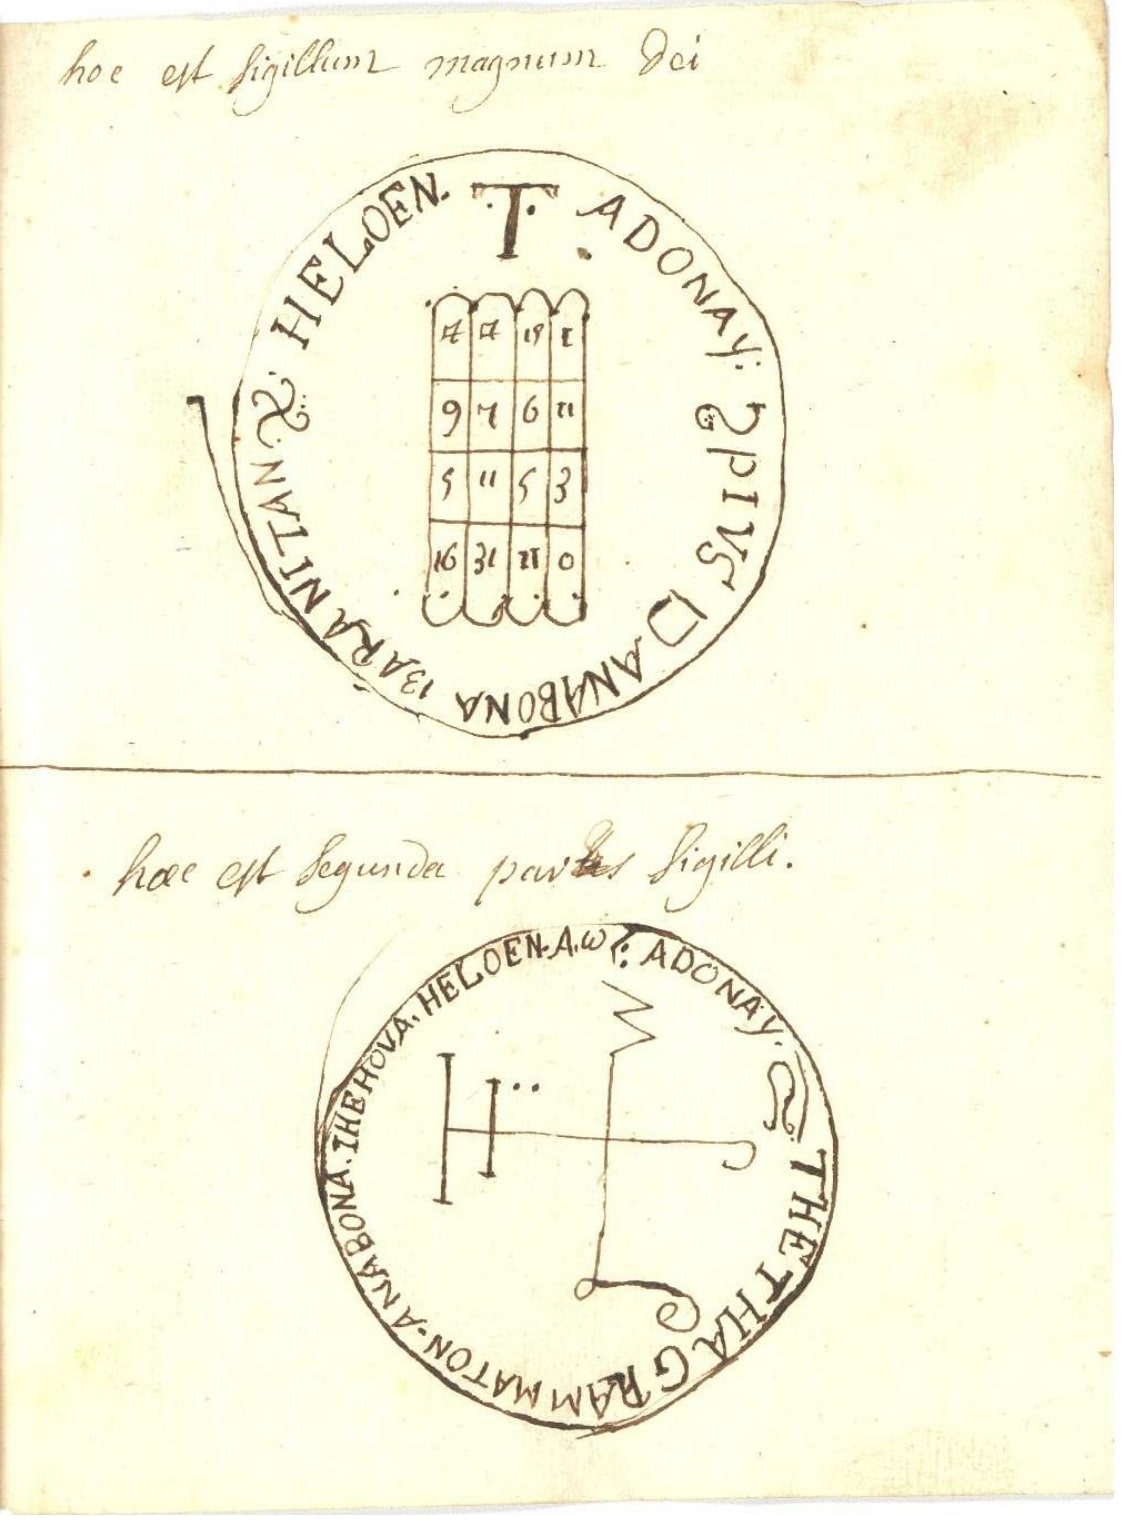 hoc est sigillum magnum Dei
T ADONAY: SPIUS DANABONA BARANITAN HELOEN.
7 7 19 1
9 7 6 11
5 11 5 3
16 31 21 0
haec est segunda pars sigilli.
ADONAY. THETHAGRAMMATON. ANABONA. IHEHOVA. HELOEN. A. ω
H